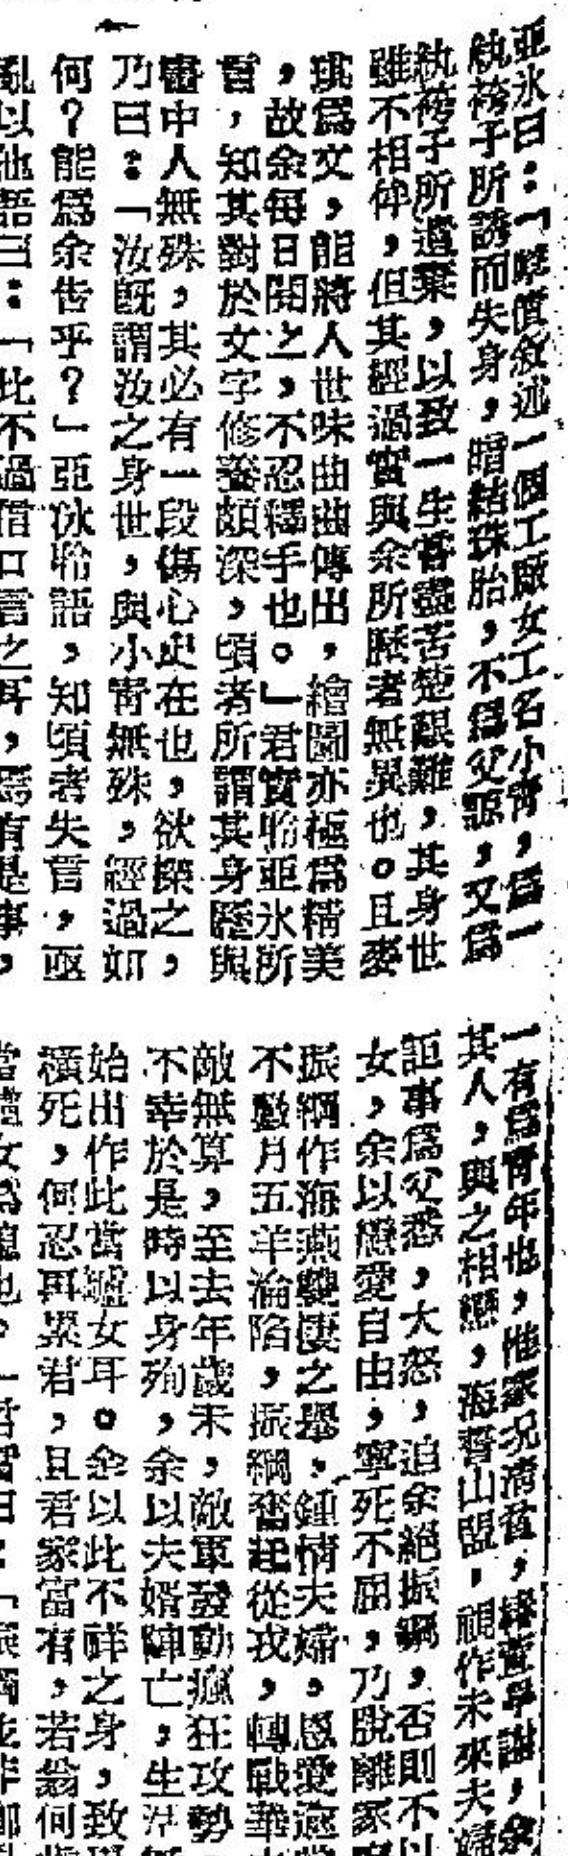 亞氷曰：「 敘述一個工廠女工名小靑，爲一
紈袴子所誘而失身，暗結珠胎，不爲父 ，又爲
紈袴子所遺棄，以致一生嘗盡苦楚艱難，其身世
雖不相侔，但其經過實與余所歷者無異也。且
爲文，能將人世味曲曲傳出，繪圖亦極爲精美
，故余每日閱之，不忍釋手也。」君實聆亞氷所
言，知其對於文字修養頗深，頃者所謂其身歷與
書中人無殊，其必有一段傷心史在也，欲探之，
乃曰：「汝旣謂汝之身世，與小靑無殊，經過如
何？能爲余告乎？」亞氷聆語，知頃者失言，亟
亂以他語曰：「此不過信口言之耳，焉有是事，
一有爲靑年也，惟家况淸貧，椿萱早謝，余
其人，與之相戀，海誓山盟，視作未來夫婦
詎事爲父悉，大怒，迫余絕振綱，否則不以
女，余以戀愛自由，寧死不屈，乃脫離家
振綱作海燕雙棲之擧，鍾情夫婦，恩愛逾
不數月五羊淪陷，振綱奮起從戎，轉戰
敵無算，至去年歲末，敵軍發動瘋狂攻勢
不幸於是時以身殉，余以夫婿陣亡，生活
始出作此當壚女耳。余以此不祥之身，致
橫死，何忍再累君，且君家富有，若翁何
當壚女爲媳也。」君實曰：「振綱